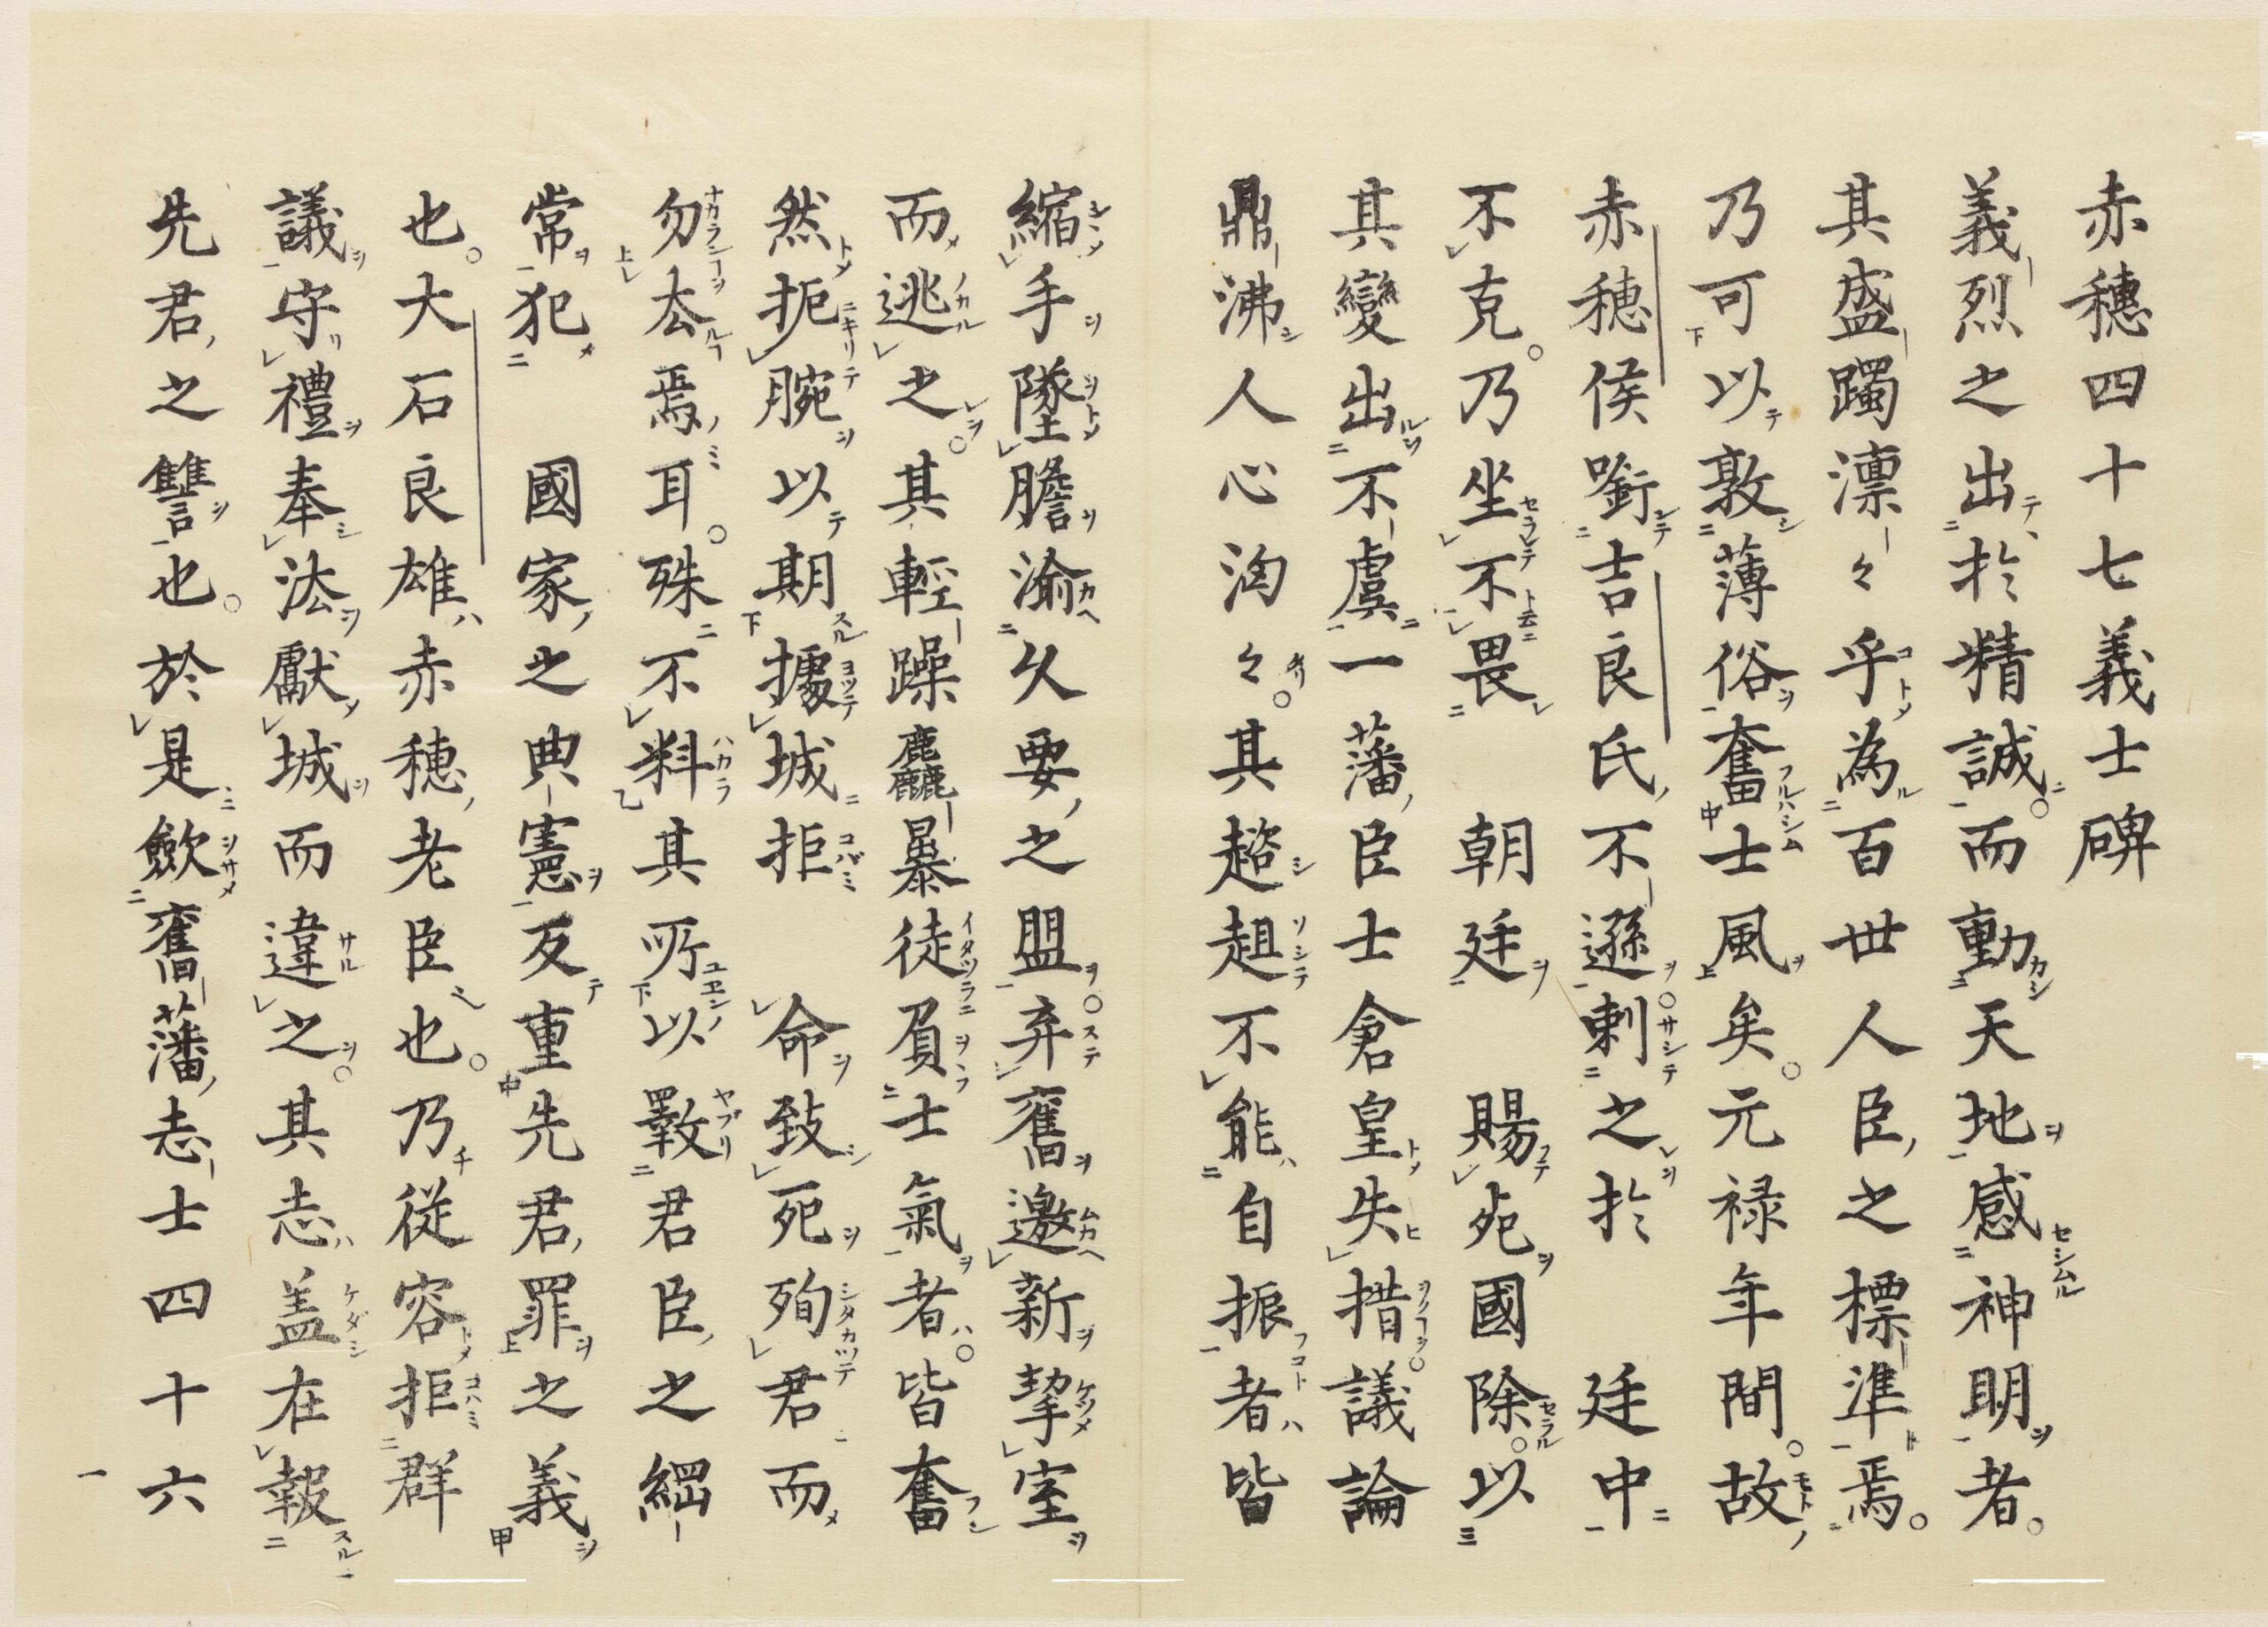 赤穗四十七義士碑
義烈之出於精誠而動天地感神明者
其盛躅凛々乎為百世人臣之標準焉
乃可以敦薄俗奮士風矣元禄年間故
赤穗侯銜吉良氏不遜刺之於廷中
不克乃坐不畏朝廷賜死國除以
其變出不虞一藩臣士倉皇失措議論
鼎沸人心洶々其趦趄不能自振者皆
縮手墜膽渝久要之盟弃舊邀新挈室
而逃之其輕躁麤暴徒負士氣者皆奮
然扼腕以期據城拒命致死殉君而
勿厺焉耳殊不料其所以斁君臣之綱
常犯國家之典憲反重先君罪之義
也大石良雄赤穗老臣也乃従容拒群
議守禮奉法獻城而違之其志盖在報
先君之讐也於是斂舊藩志士四十六
一